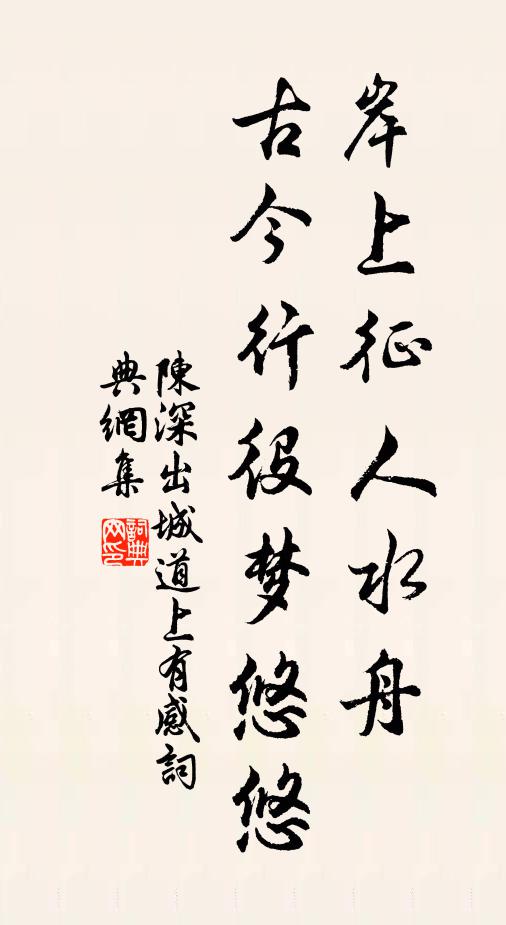 岸上征人水舟
古今行役梦悠悠
陳深出城道上有感詞
典網集
詞典網印